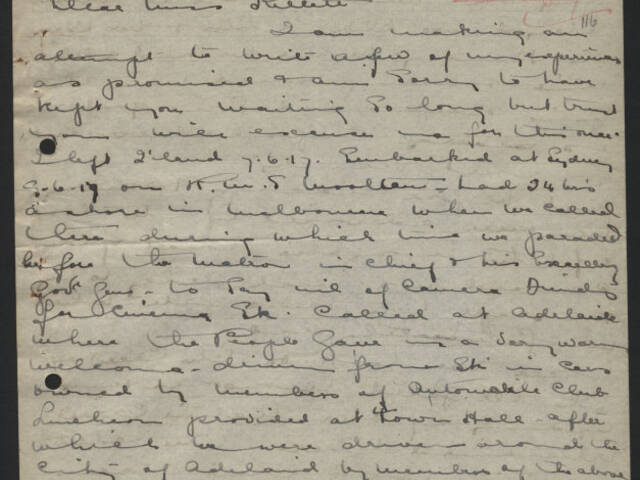 Dear Miss Kellett
116
I am making an
attempt to write a few of my experiences
as promised & am sorry to have
kept you waiting so long but trust
you will excuse me for this once.
I left Q'land 7.6.17. Embarked at Sydney
9.6.17 on R.M.S Mooltan – had 24 hrs
ashore in Melbourne when we called
there during which time we paraded
before the Matron in Chief & his Excellency
Gov. Gen – to say nil of Camera
for Cinema Etc. Called at Adelaide
where the People gave us a very warm
welcome – driven from Str in cars
owned by members of Automobile Club
Luncheon provided at Town Hall – after
which we were driven around the
City of Adelaide by members of the above